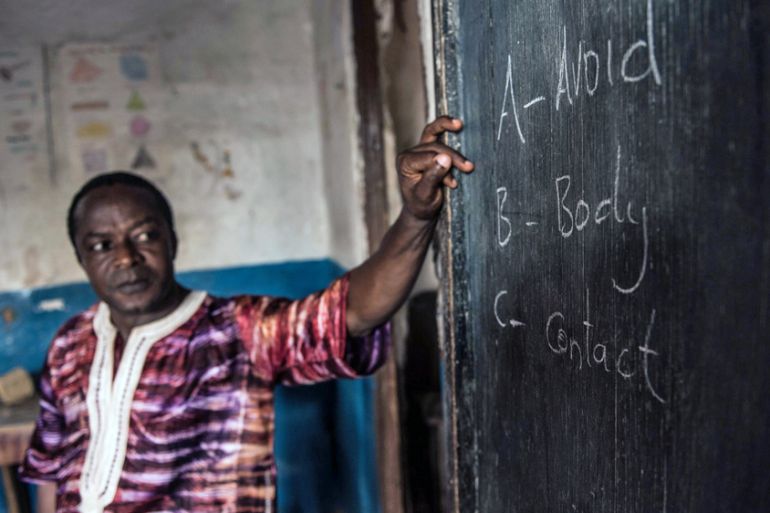 A - Avoid
B - Body
C - Contact